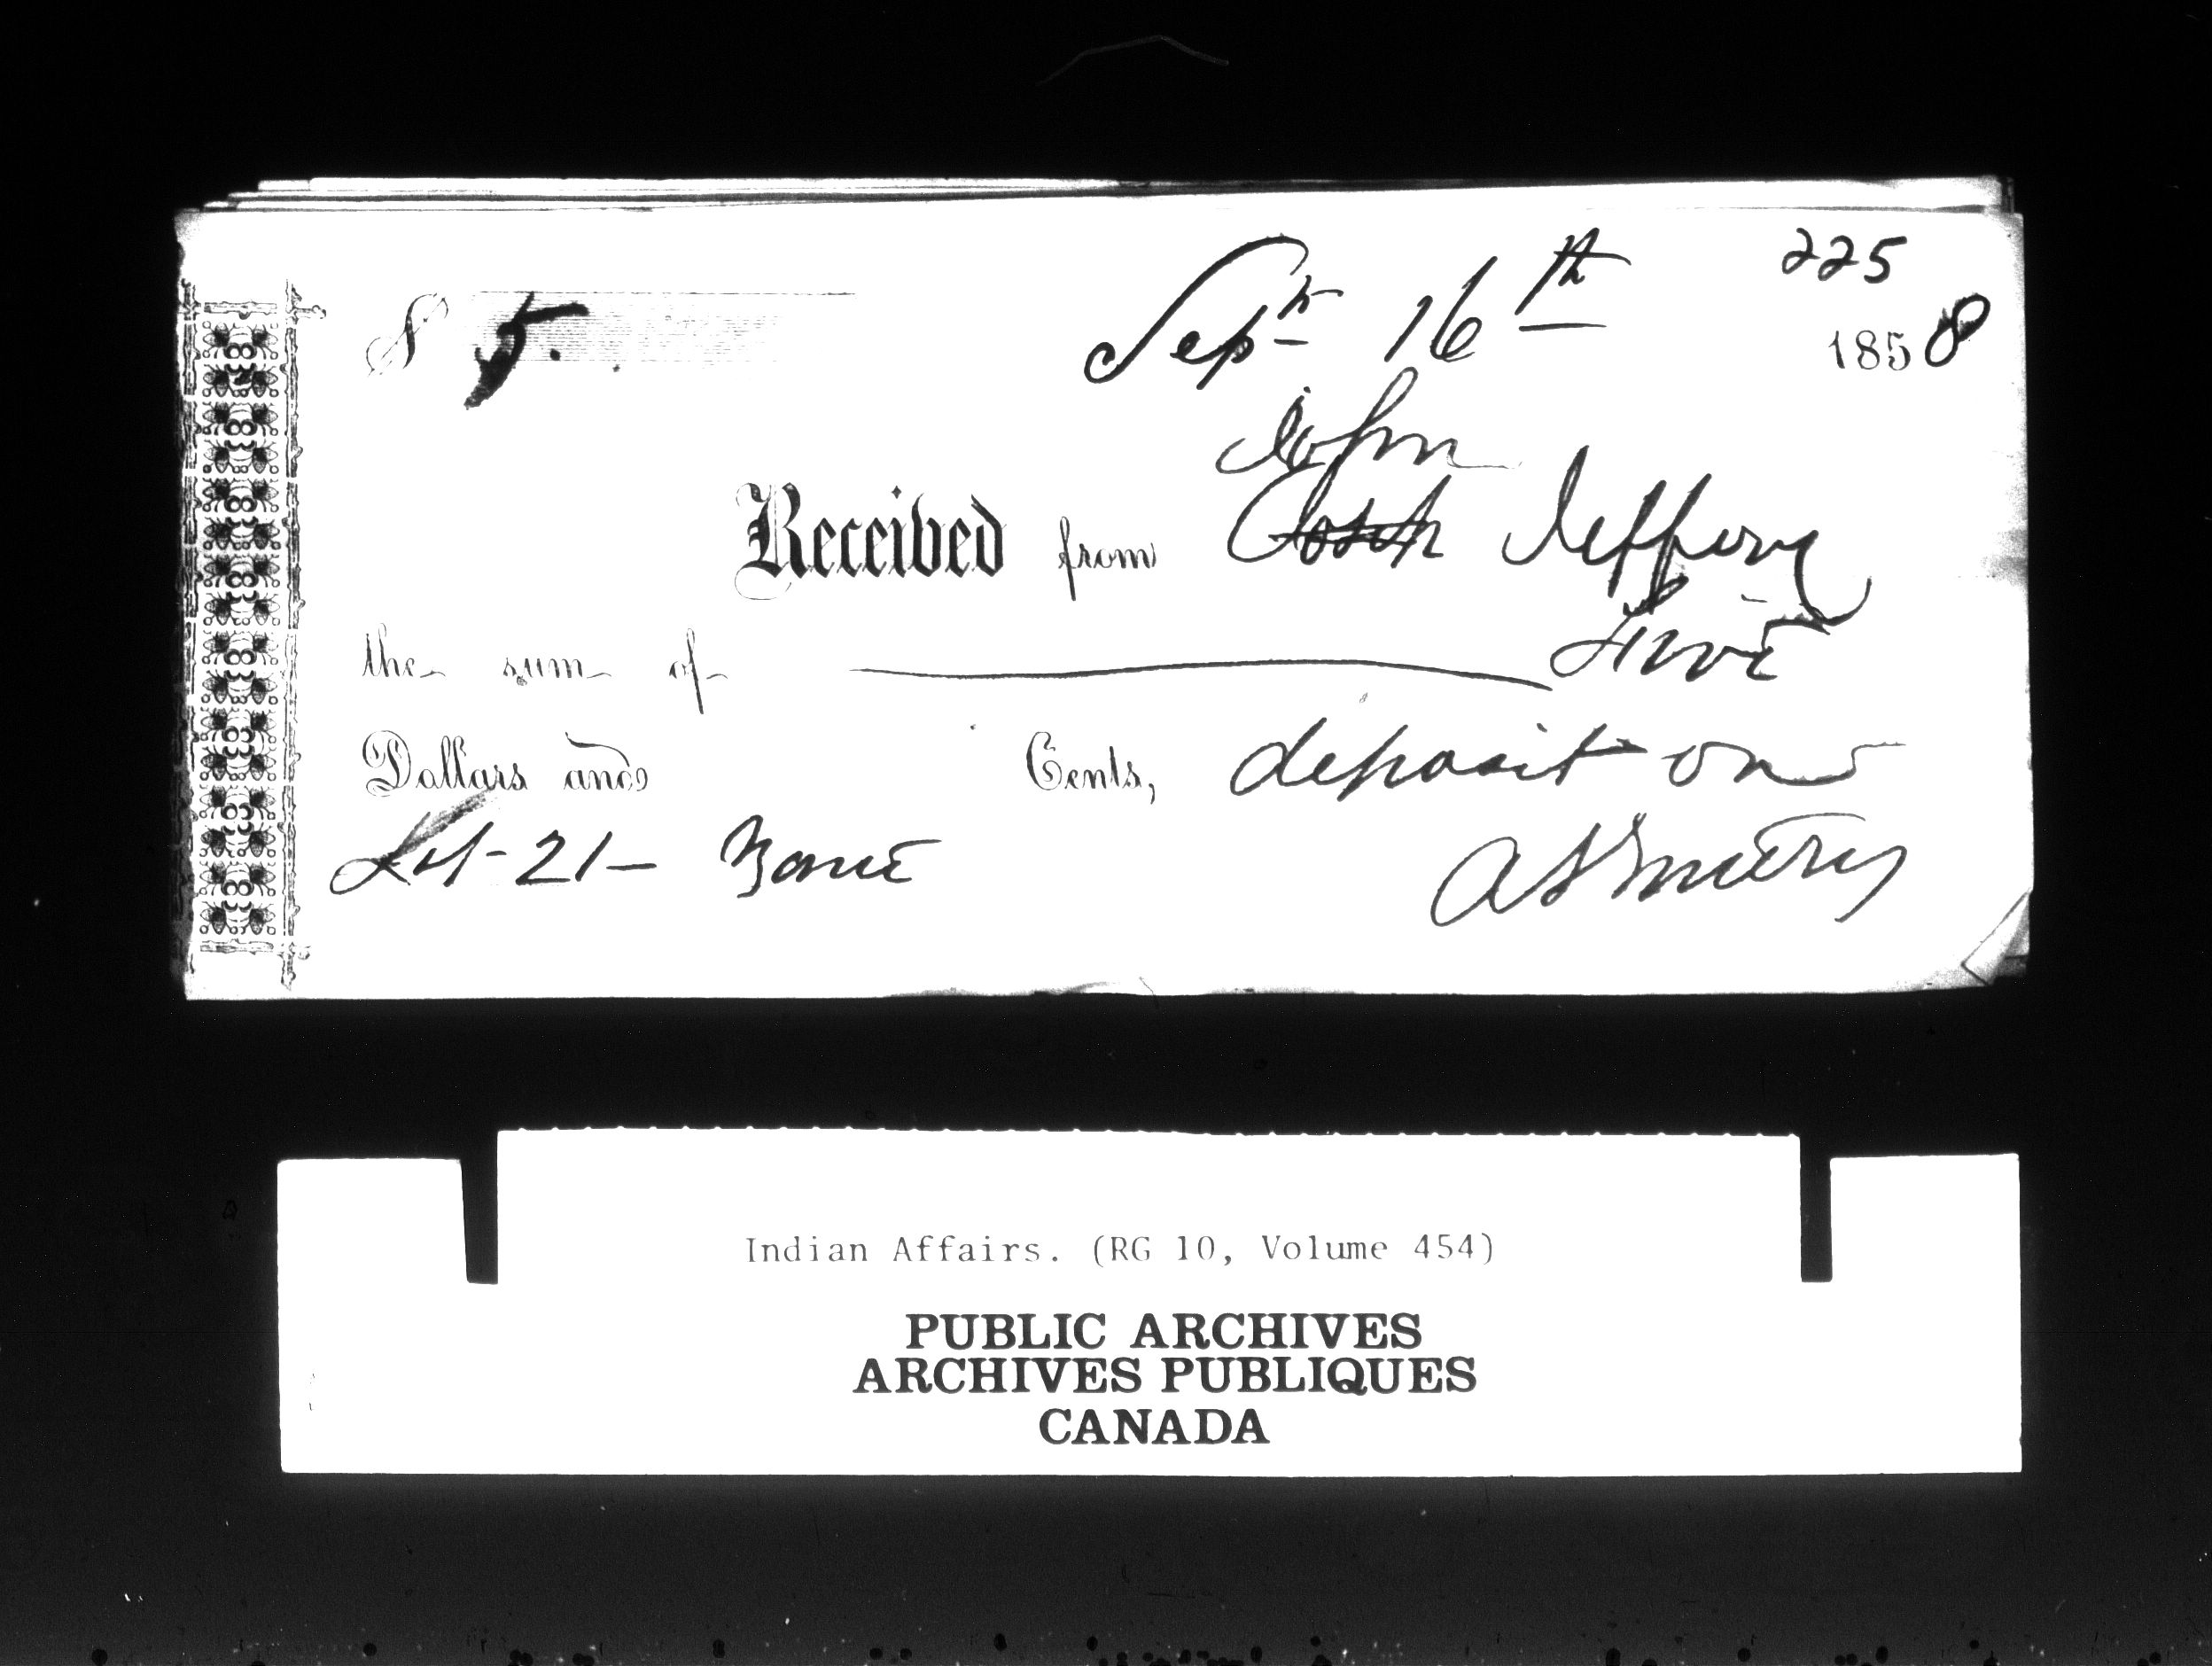 225
$ 5. Sept 16th 1858
John
Received from Joseph Jeffery
the sum of Five
Dollars and Cents, deposit on
Lot 21
Indian Affairs. (RG 10, Volume 454)
PUBLIC ARCHIVES
ARCHIVES PUBLIQUES
CANADA